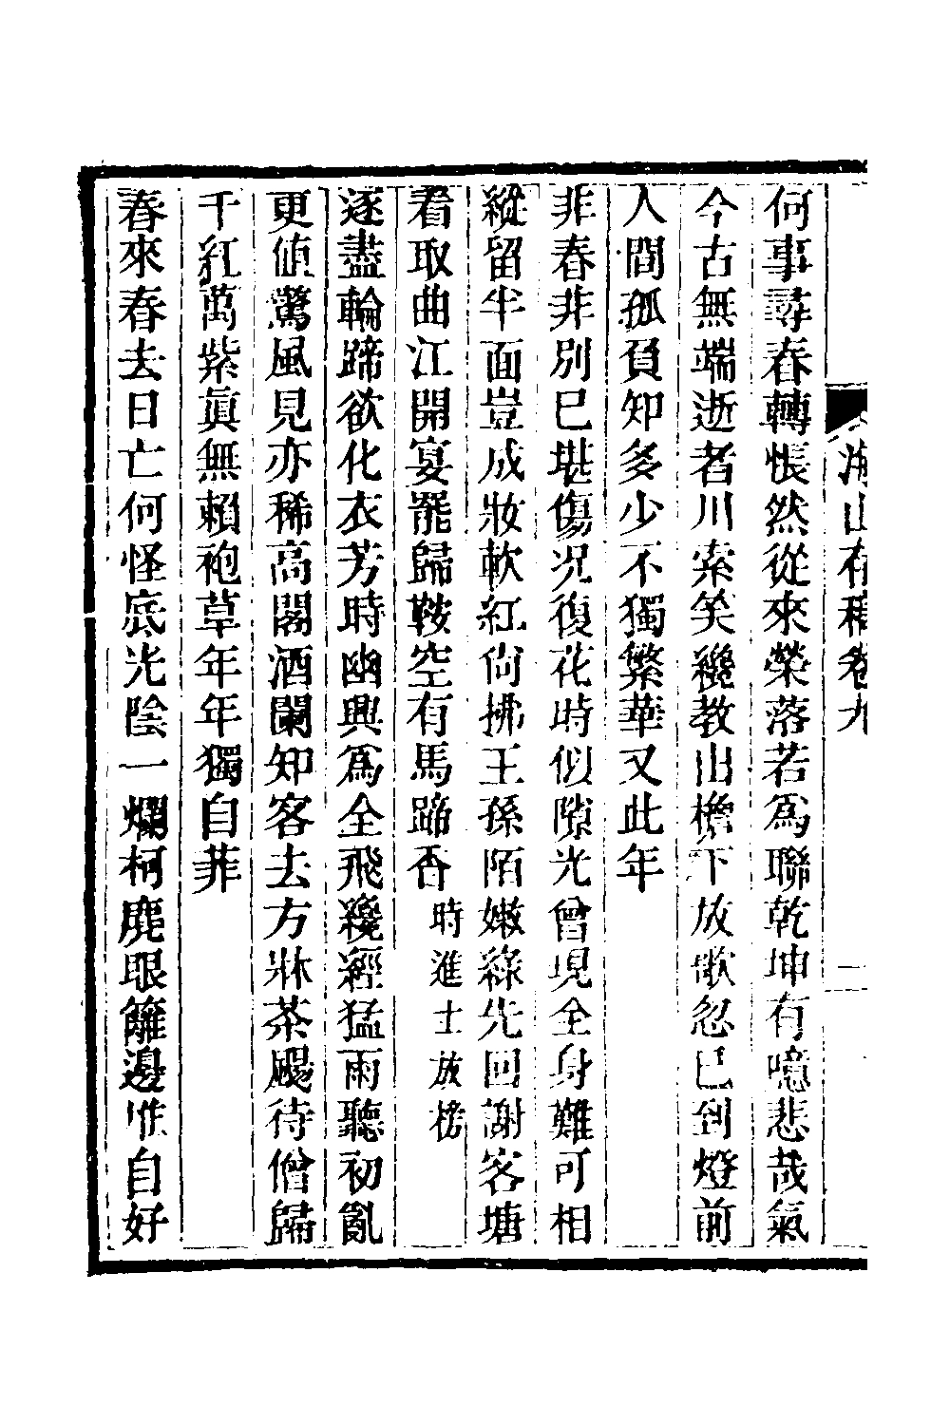 海山存稿卷九
何事尋春轉悵然從來榮落若爲聯乾坤有噫悲哉氣
今古無端逝者川索笑纔教出檐下放歌忽已到燈前
人間孤負知多少不獨繁華又此年
非春非別已堪傷况復花時似隙光曾現全身難可相
縱留半面豈成妝軟紅尙拂王孫陌嫩綠先回謝客塘
看取曲江開宴罷歸鞍空有馬蹄香時進士放榜
逐盡輪蹄欲化衣芳時幽興爲全飛纔經猛雨聽初亂
更値驚風見亦稀高閣酒闌知客去方牀茶颺待僧歸
千紅萬紫眞無賴袍草年年獨自菲
春來春去日亡何怪底光陰一爛柯塵眼籬邊惟自好